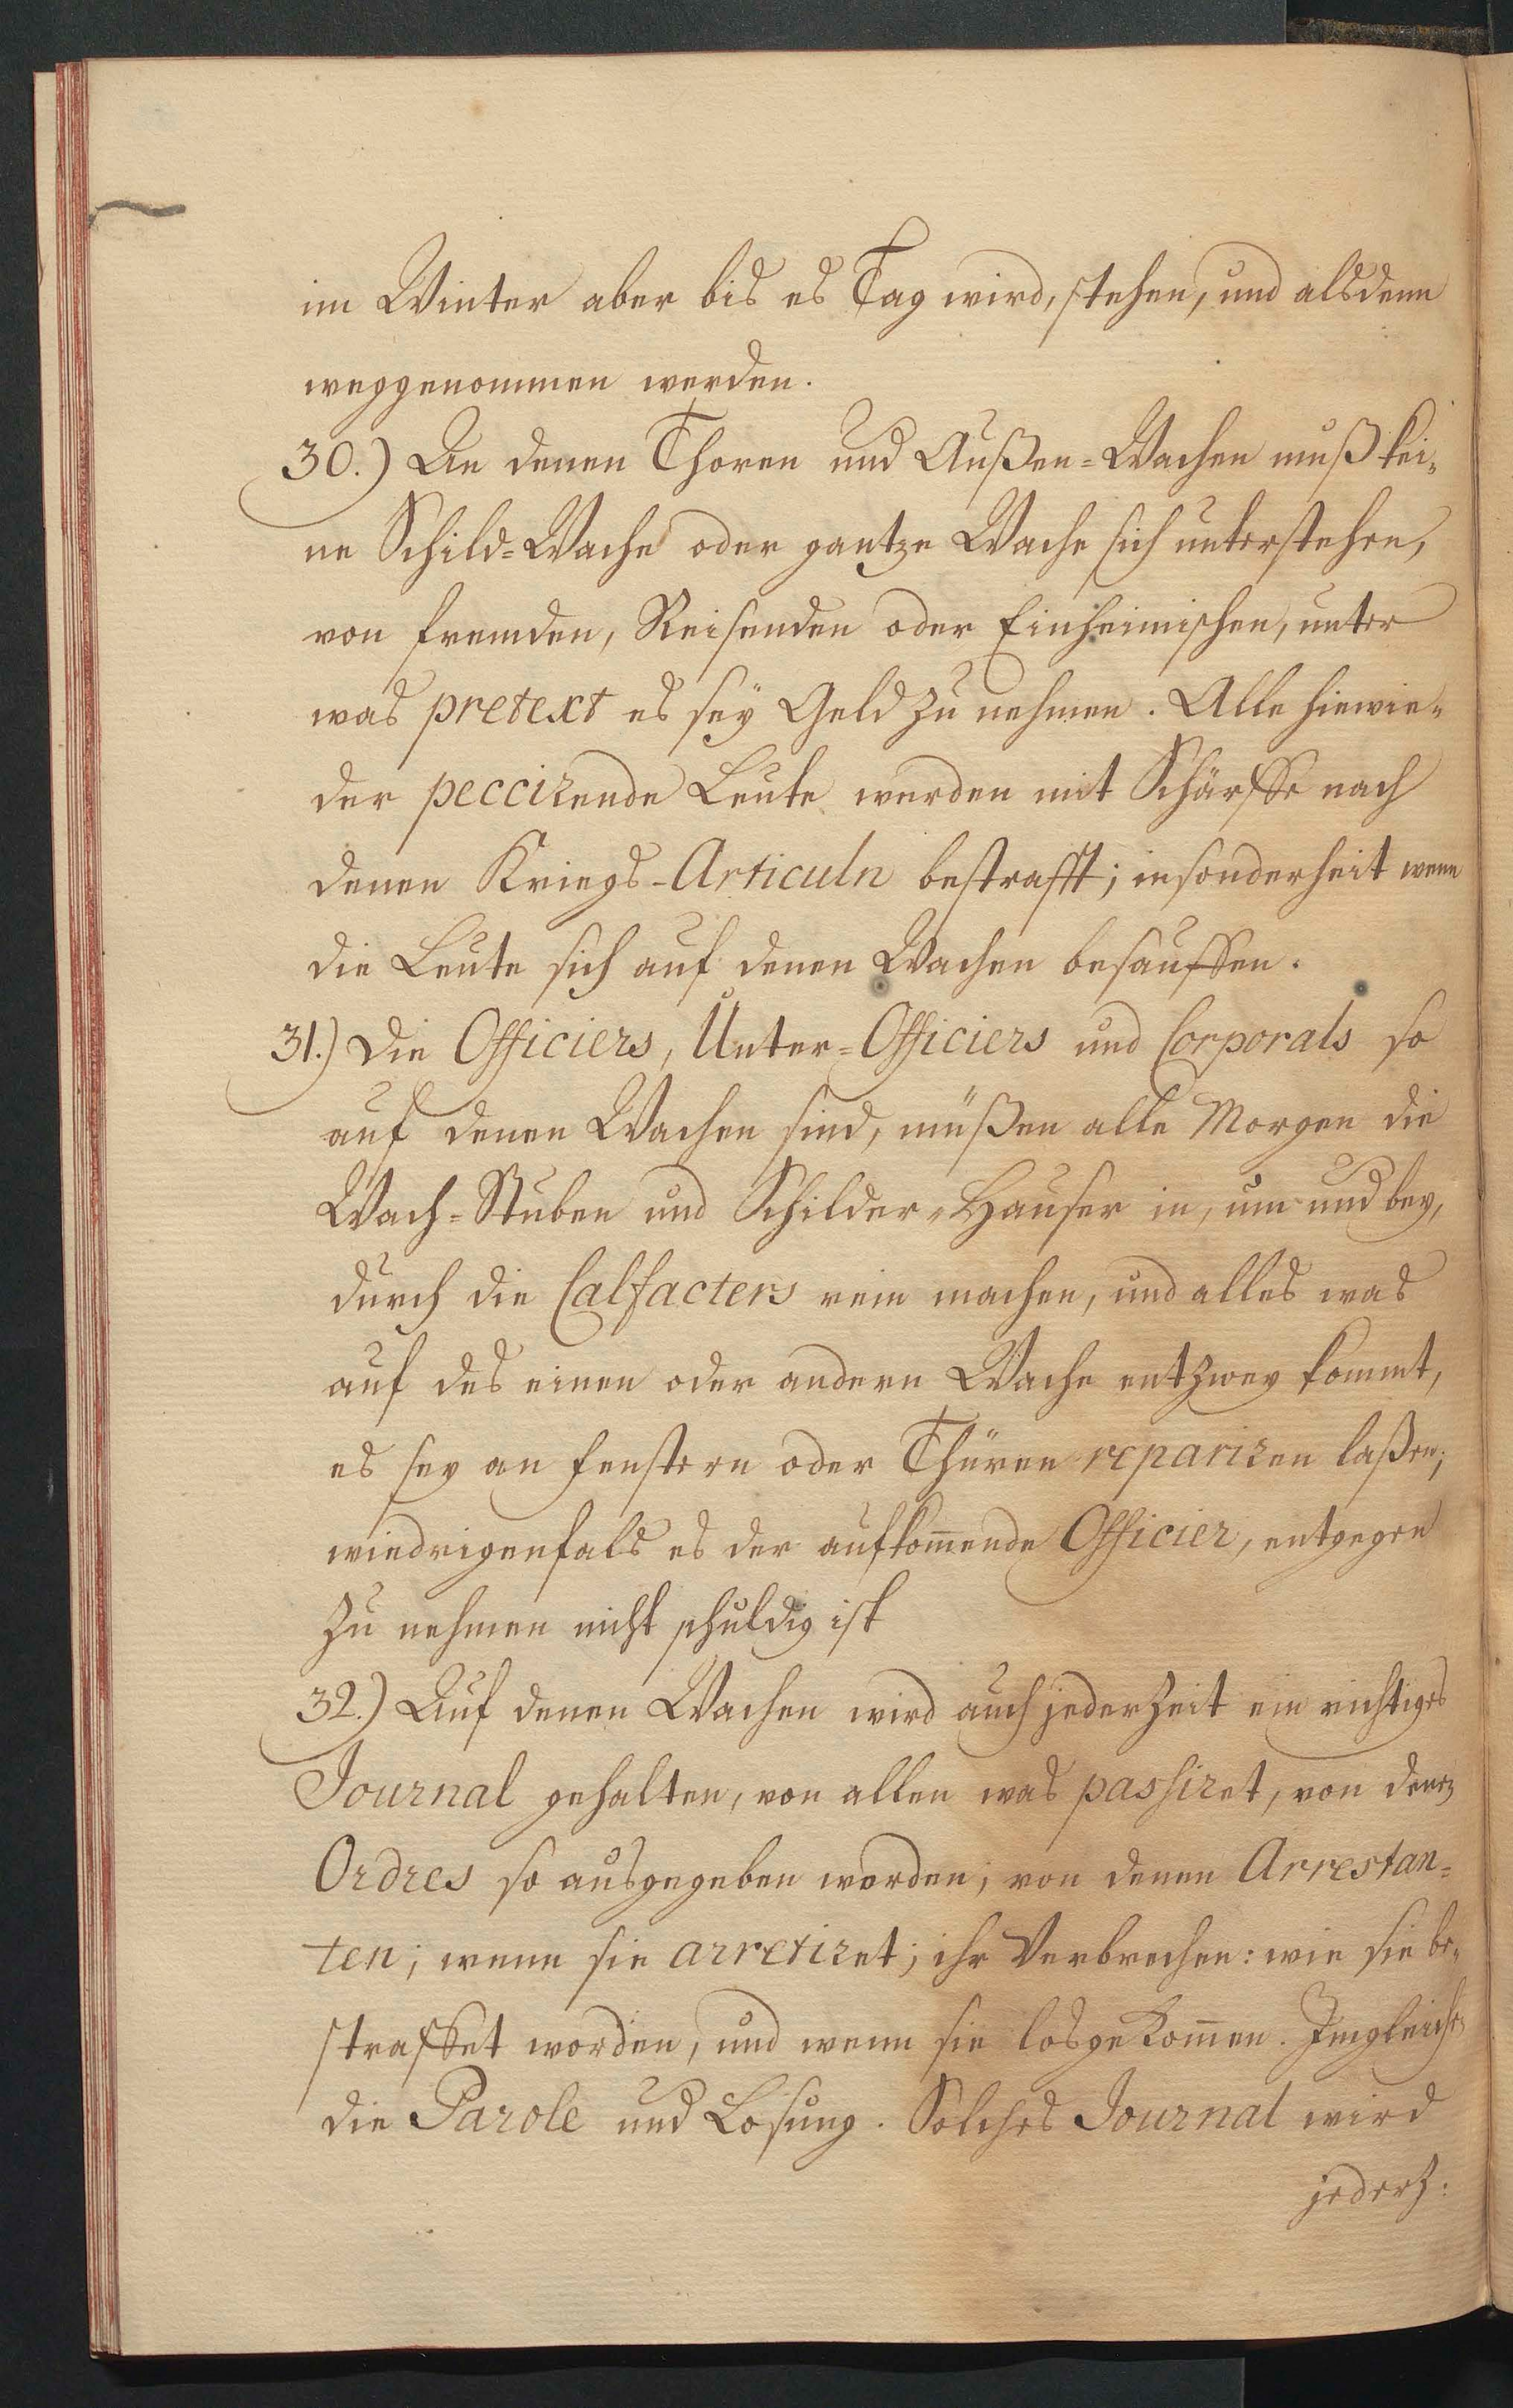 im Winter aber bis es Tag wird, stehen, und alsdenn
weggenommen werden.
30.) An denen Thoren und Außen=Wachen muß kei=
ne Schild=Wache oder gantze Wache sich unterstehen,
von fremden, Reisenden oder Einheimischen, unter
was pretext es seÿ Geld zu nehmen. Alle hiewie=
der peccirende Leute werden mit Schärffe nach
denen Kriegs-Articuln bestrafft; insonderheit wenn
die Leute sich auf denen Wachen besauffen.
31.) Die Officiers, Unter=Officiers und Corporals so
auf denen Wachen sind, müßen alle Morgen die
Wach=Stuben und Schilder=Hauser in, um und bey,
durch die Calfacters rein machen, und alles was
auf des einen oder andern Wache entzwey kommt,
es sey an fenstern oder Thüren repariren laßen;
wiedrigenfals es der aufkom̄ende Officier, entgegen
zu nehmen nicht schuldig ist
32.) Auf denen Wachen wird auch jederzeit ein richtiges
Journal gehalten, von allen was passiret, von denen
Ordres so ausgegeben worden; von denen Arrestan=
ten; wenn sie arretiret; ihr Verbrechen: wie sie be=
straffet worden, und wenn sie losgekom̄en. Imgleichen
die Parole und Losung. Solches Journal wird
jederz: